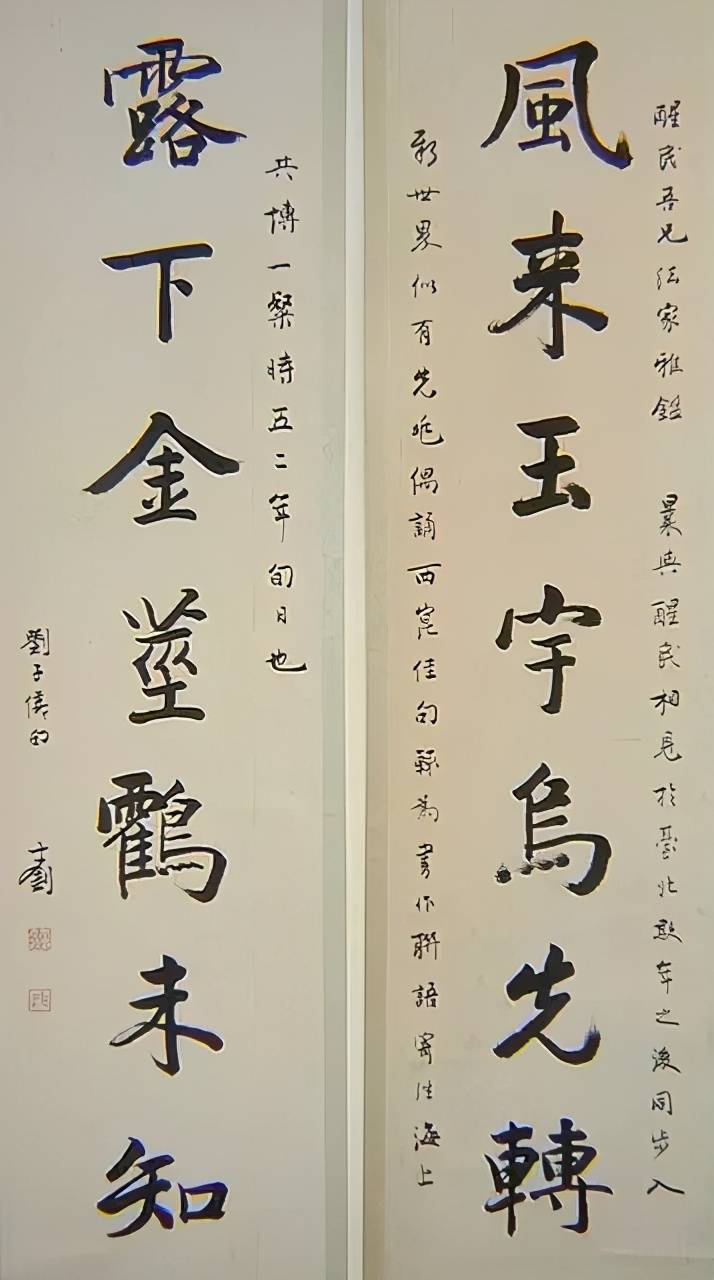 醒民吾兄法家雅鋻 曩與醒民相見於臺北 之後同步入
風来玉宇烏先轉
新世界似有先兆偶誦西崑佳句輒為書作聯語寄往海上
共博一粲時五二年旬日也
露下金莖鸖未知
劉子儀句